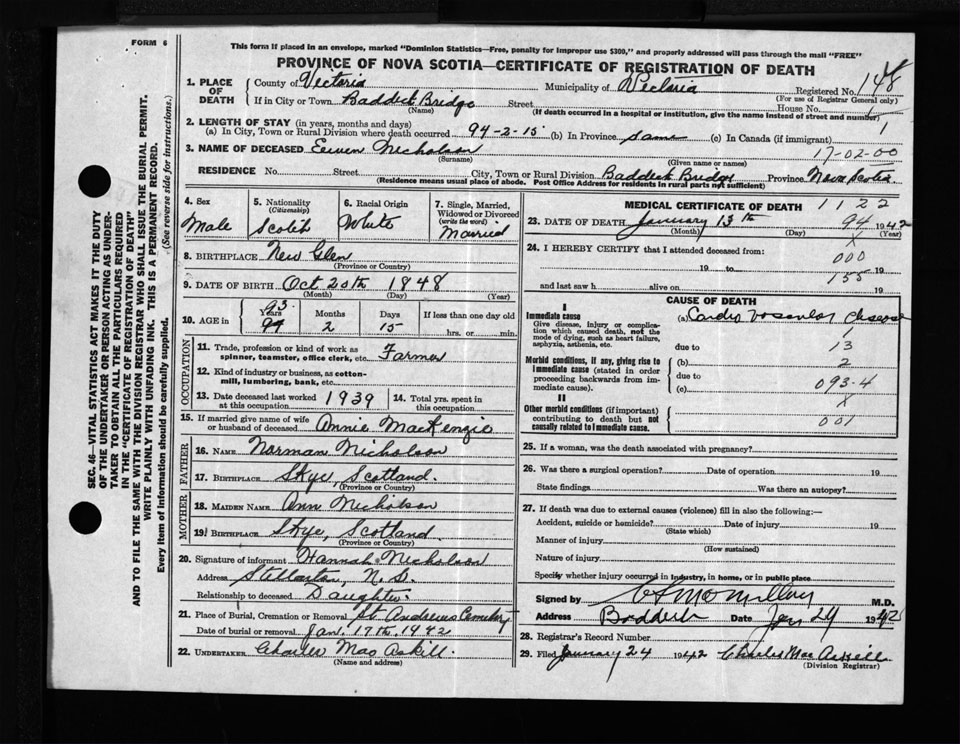 FORM 6
This form if placed in an envelope, marked "Dominion Statistics—Free, penalty for improper use $300," and properly addressed will pass through the mail "FREE"
PROVINCE OF NOVA SCOTIA—CERTIFICATE OF REGISTRATION OF DEATH
SEC. 46—VITAL STATISTICS ACT MAKES IT THE DUTY
OF THE UNDERTAKER OR PERSON ACTING AS UNDER-
TAKER TO OBTAIN ALL THE PARTICULARS REQUIRED
IN THE "CERTIFICATE OF REGISTRATION OF DEATH"
AND TO FILE THE SAME WITH THE DIVISION REGISTRAR WHO SHALL ISSUE THE BURIAL PERMIT.
WRITE PLAINLY WITH UNFADING INK. THIS IS A PERMANENT RECORD.
Every item of information should be carefully supplied. (See reverse side for instructions.)
1. PLACE OF DEATH
County of Victoria Municipality of Victoria Registered No. 148
(For use of Registrar General only)
If in City or Town Baddeck Bridge Street House No.
(Name) (If death occurred in a hospital or institution, give the name instead of street and number)
2. LENGTH OF STAY (in years, months and days)
(a) In City, Town or Rural Division where death occurred 94-2-15 (b) In Province Same (c) In Canada (if immigrant) 1
3. NAME OF DECEASED Ewen Nicholson 17-02-00
(Surname) (Given name or names)
RESIDENCE No. Street City, Town or Rural Division Baddeck Bridge Province Nova Scotia
(Residence means usual place of abode. Post Office Address for residents in rural parts not sufficient)
4. Sex Male
5. Nationality (Citizenship) Scotch
6. Racial Origin White
7. Single, Married, Widowed or Divorced (write the word) Married
8. BIRTHPLACE New Glen
(Province or Country)
9. DATE OF BIRTH Oct 20th 1848
(Month) (Day) (Year)
10. AGE in 93 Years 94 Months 2 Days 15 If less than one day old hrs. or min.
OCCUPATION
11. Trade, profession or kind of work as spinner, teamster, office clerk, etc. Farmer
12. Kind of industry or business, as cotton-mill, lumbering, bank, etc.
13. Date deceased last worked at this occupation 1939 14. Total yrs. spent in this occupation
15. If married give name of wife or husband of deceased Annie MacKenzie
FATHER
16. NAME Norman Nicholson
17. BIRTHPLACE Skye, Scotland.
(Province or Country)
MOTHER
18. MAIDEN NAME Ann Nicholson
19. BIRTHPLACE Skye, Scotland
(Province or Country)
20. Signature of informant Hannah Nicholson
Address Stellarton, N. S.
Relationship to deceased Daughter
21. Place of Burial, Cremation or Removal St. Andrews Cemetery
Date of burial or removal Jan. 17th, 1942
22. UNDERTAKER Charles MacAskill
(Name and address)
MEDICAL CERTIFICATE OF DEATH 1122
23. DATE OF DEATH January 13th 94 1942
(Month) (Day) (Year)
X
24. I HEREBY CERTIFY that I attended deceased from: 000
19 to 19
and last saw h alive on 155 19
CAUSE OF DEATH
I
Immediate cause
Give disease, injury or complication which caused death, not the mode of dying, such as heart failure, asphyxia, asthenia, etc.
(a) Cardio vascular disease
1
due to 13
Morbid conditions, if any, giving rise to immediate cause (stated in order proceeding backwards from immediate cause).
(b) 2
due to
(c) 093-4
II X
Other morbid conditions (if important) contributing to death but not causally related to immediate cause. 001
25. If a woman, was the death associated with pregnancy?
26. Was there a surgical operation? Date of operation 19
State findings Was there an autopsy?
27. If death was due to external causes (violence) fill in also the following:—
Accident, suicide or homicide? Date of injury 19
(State which)
Manner of injury
(How sustained)
Nature of injury
Specify whether injury occurred in industry, in home, or in public place
Signed by McMillan M.D.
Address Baddeck Date Jan 24 1942
28. Registrar's Record Number
29. Filed January 24 1942 Charles MacAskill
(Division Registrar)